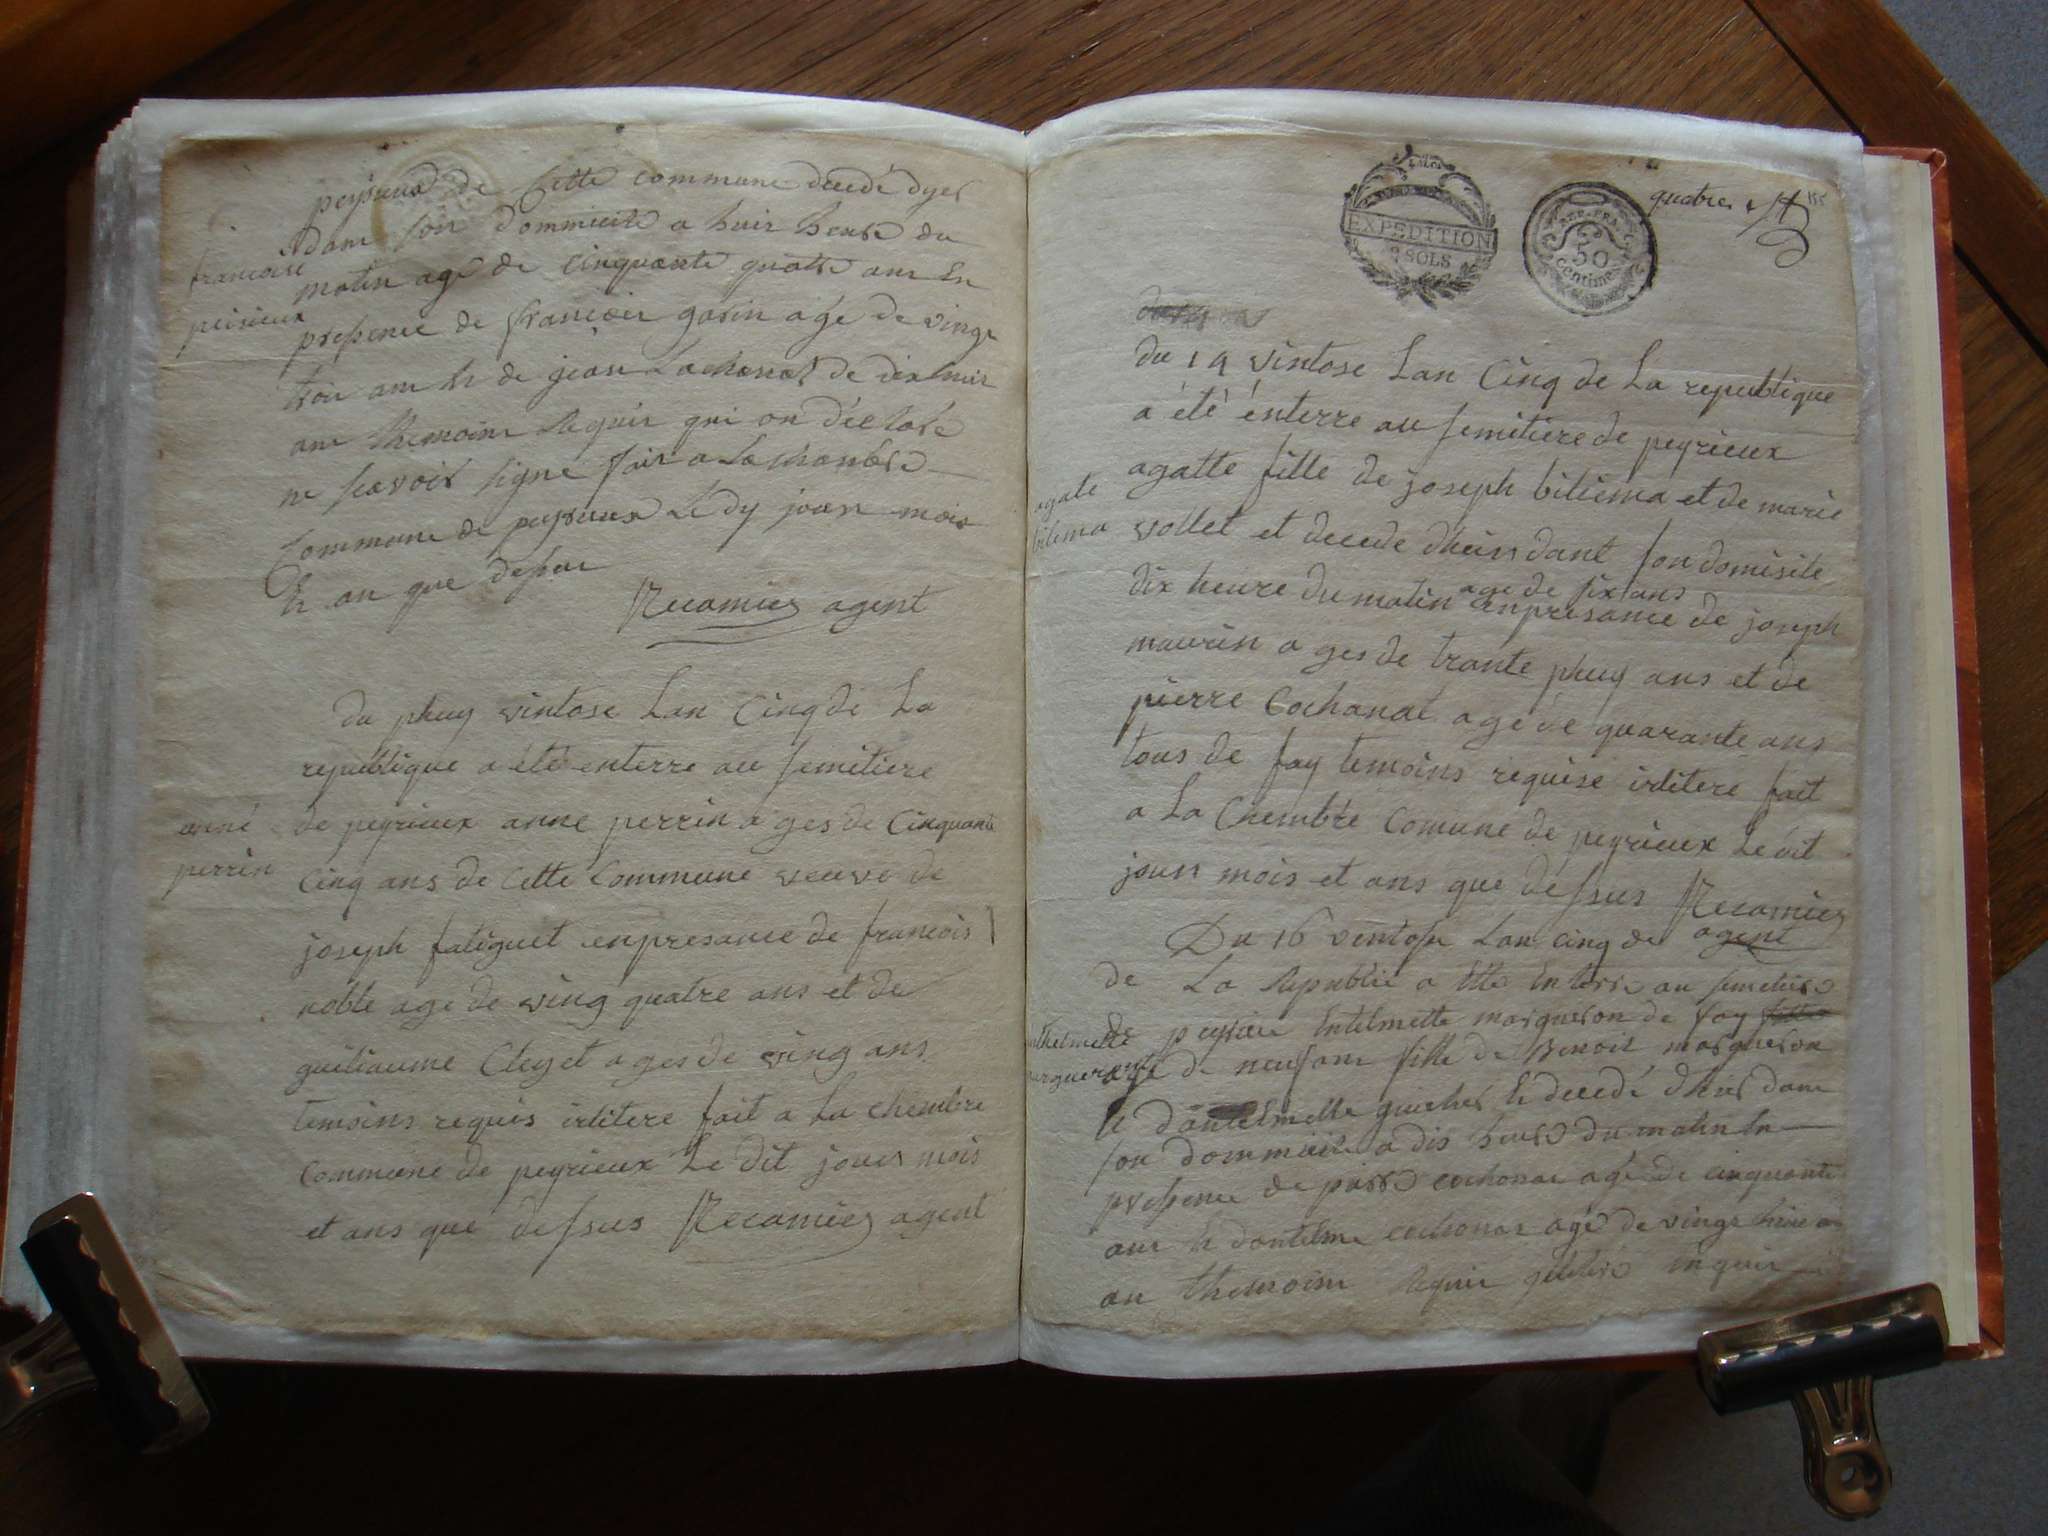 peyrieux de Cette commune decedé dyer
dans son dommicile a huir heure du
francoise
peisieux
matin age de cinquante quatre ans En
presence de francoir gorin agé de vingt
troi ans Et de jean Lachanal de dix huir
ans themoins Requir qui on déclaré
ne scavoir signe fair a La chambre
Commune de peyrieux Le dy jour mois
Et an que dessus
Recamier agent
du phuy vintose Lan Cinq de La
republique a été enterre au semetiere
anné
perrin
de peyrieux anne perrin a ges de Cinquante
Cinq ans de Cette Commune veuve de
joseph faliguet enpresance de francois
noble age de ving quatre ans et de
guiliaume Cleyet a ges de ving ans
temoins requis irlitere fait a La chembre
Commune de peyrieux Le dit jour mois
et ans que dessus Recamier agent
quatre
EXPEDITION
8 SOLS
REP. FRA.
50
Centimes
du 14 vintose Lan Cinq de La republique
a été énterre au semetiere de peyrieux
agate
bilema
agatte fille de joseph biliema et de marie
vollet et decede dhier dant son domisile
dix heure du matin age de six ans enpresance de joseph
mawrin a ges de trante phuy ans et de
pierre Cochanat age de quarante ans
tous de fay temoins requise irlitere fait
a La Chembre Comune de peyrieux Le dit
jour mois et ans que déssus Recamier
agent
Du 16 ventose Lan Cinq de
de La Republic a Etté Enterre au semetiere
peyrieu Entelmette margueron de fay
age de neuf ans fille de Benoit margueron
Et dantelmette guicher Et decedé dhier dans
son dommicile a dis heure du matin En
presence de pierre cochonat agé de cinquante
ans Et dantelme cochonat agé de vingt huit
an themoins Requir